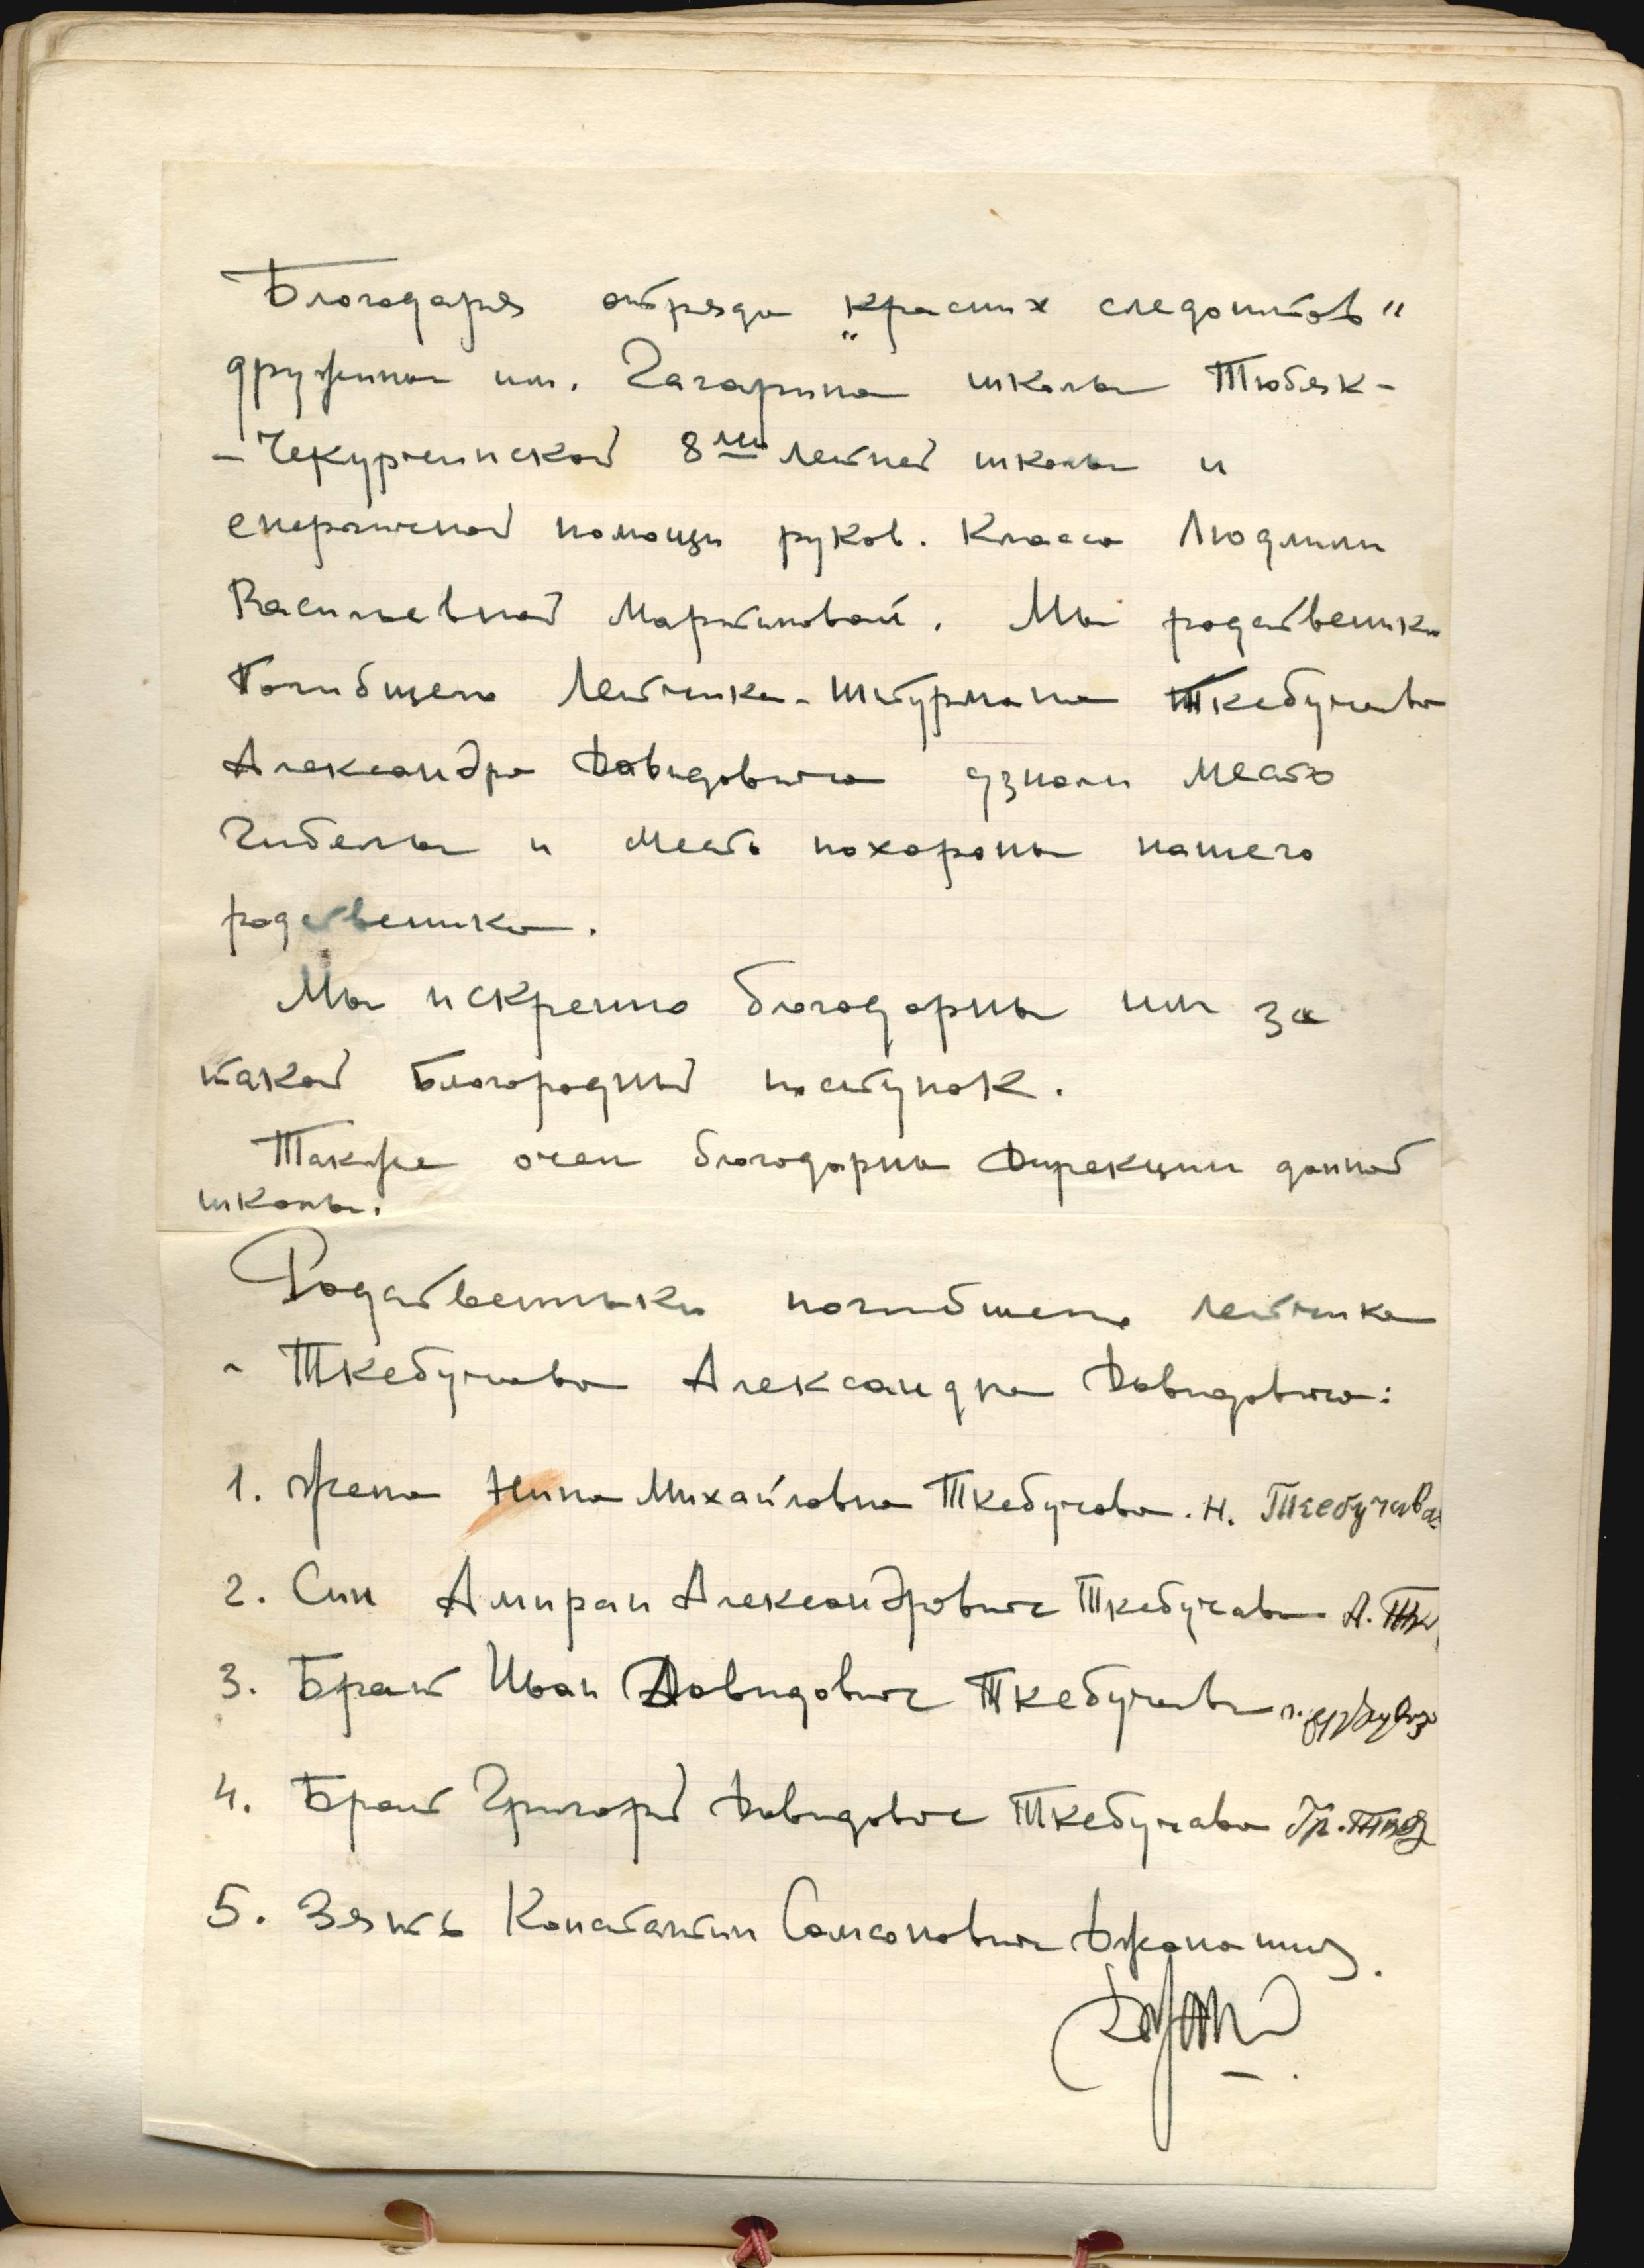 Благодаря отряда „красних следопитов"
дружины им. Гагарина школы Тюбяк-
-Чекурчинской 8ми летней школы и
енергичной помощи руков. класса Людмили
Васильевной Мартиновой. Мы родствeники
Погибщего Летчика-Штурмана Ткебучава
Александра Давидовича узнали место
гибелы и место похороны нашего
родствeника.
Мы искренно благодарны им за
такой благородный поступок.
Также очен благодарны Дирекции данной
школы.
Родственники погибшего летчика
- Ткебучава Александра Давидовича:
1. Жена Нина Михайловна Ткебучава. Н. Ткебучава
2. Син Амиран Александрович Ткебучава А. Тк
3. Брат Иван Давидович Ткебучава
4. Брат Григорий Давидович Ткебучава Гр.
5. Зять Константин Самсонович Джанашия.